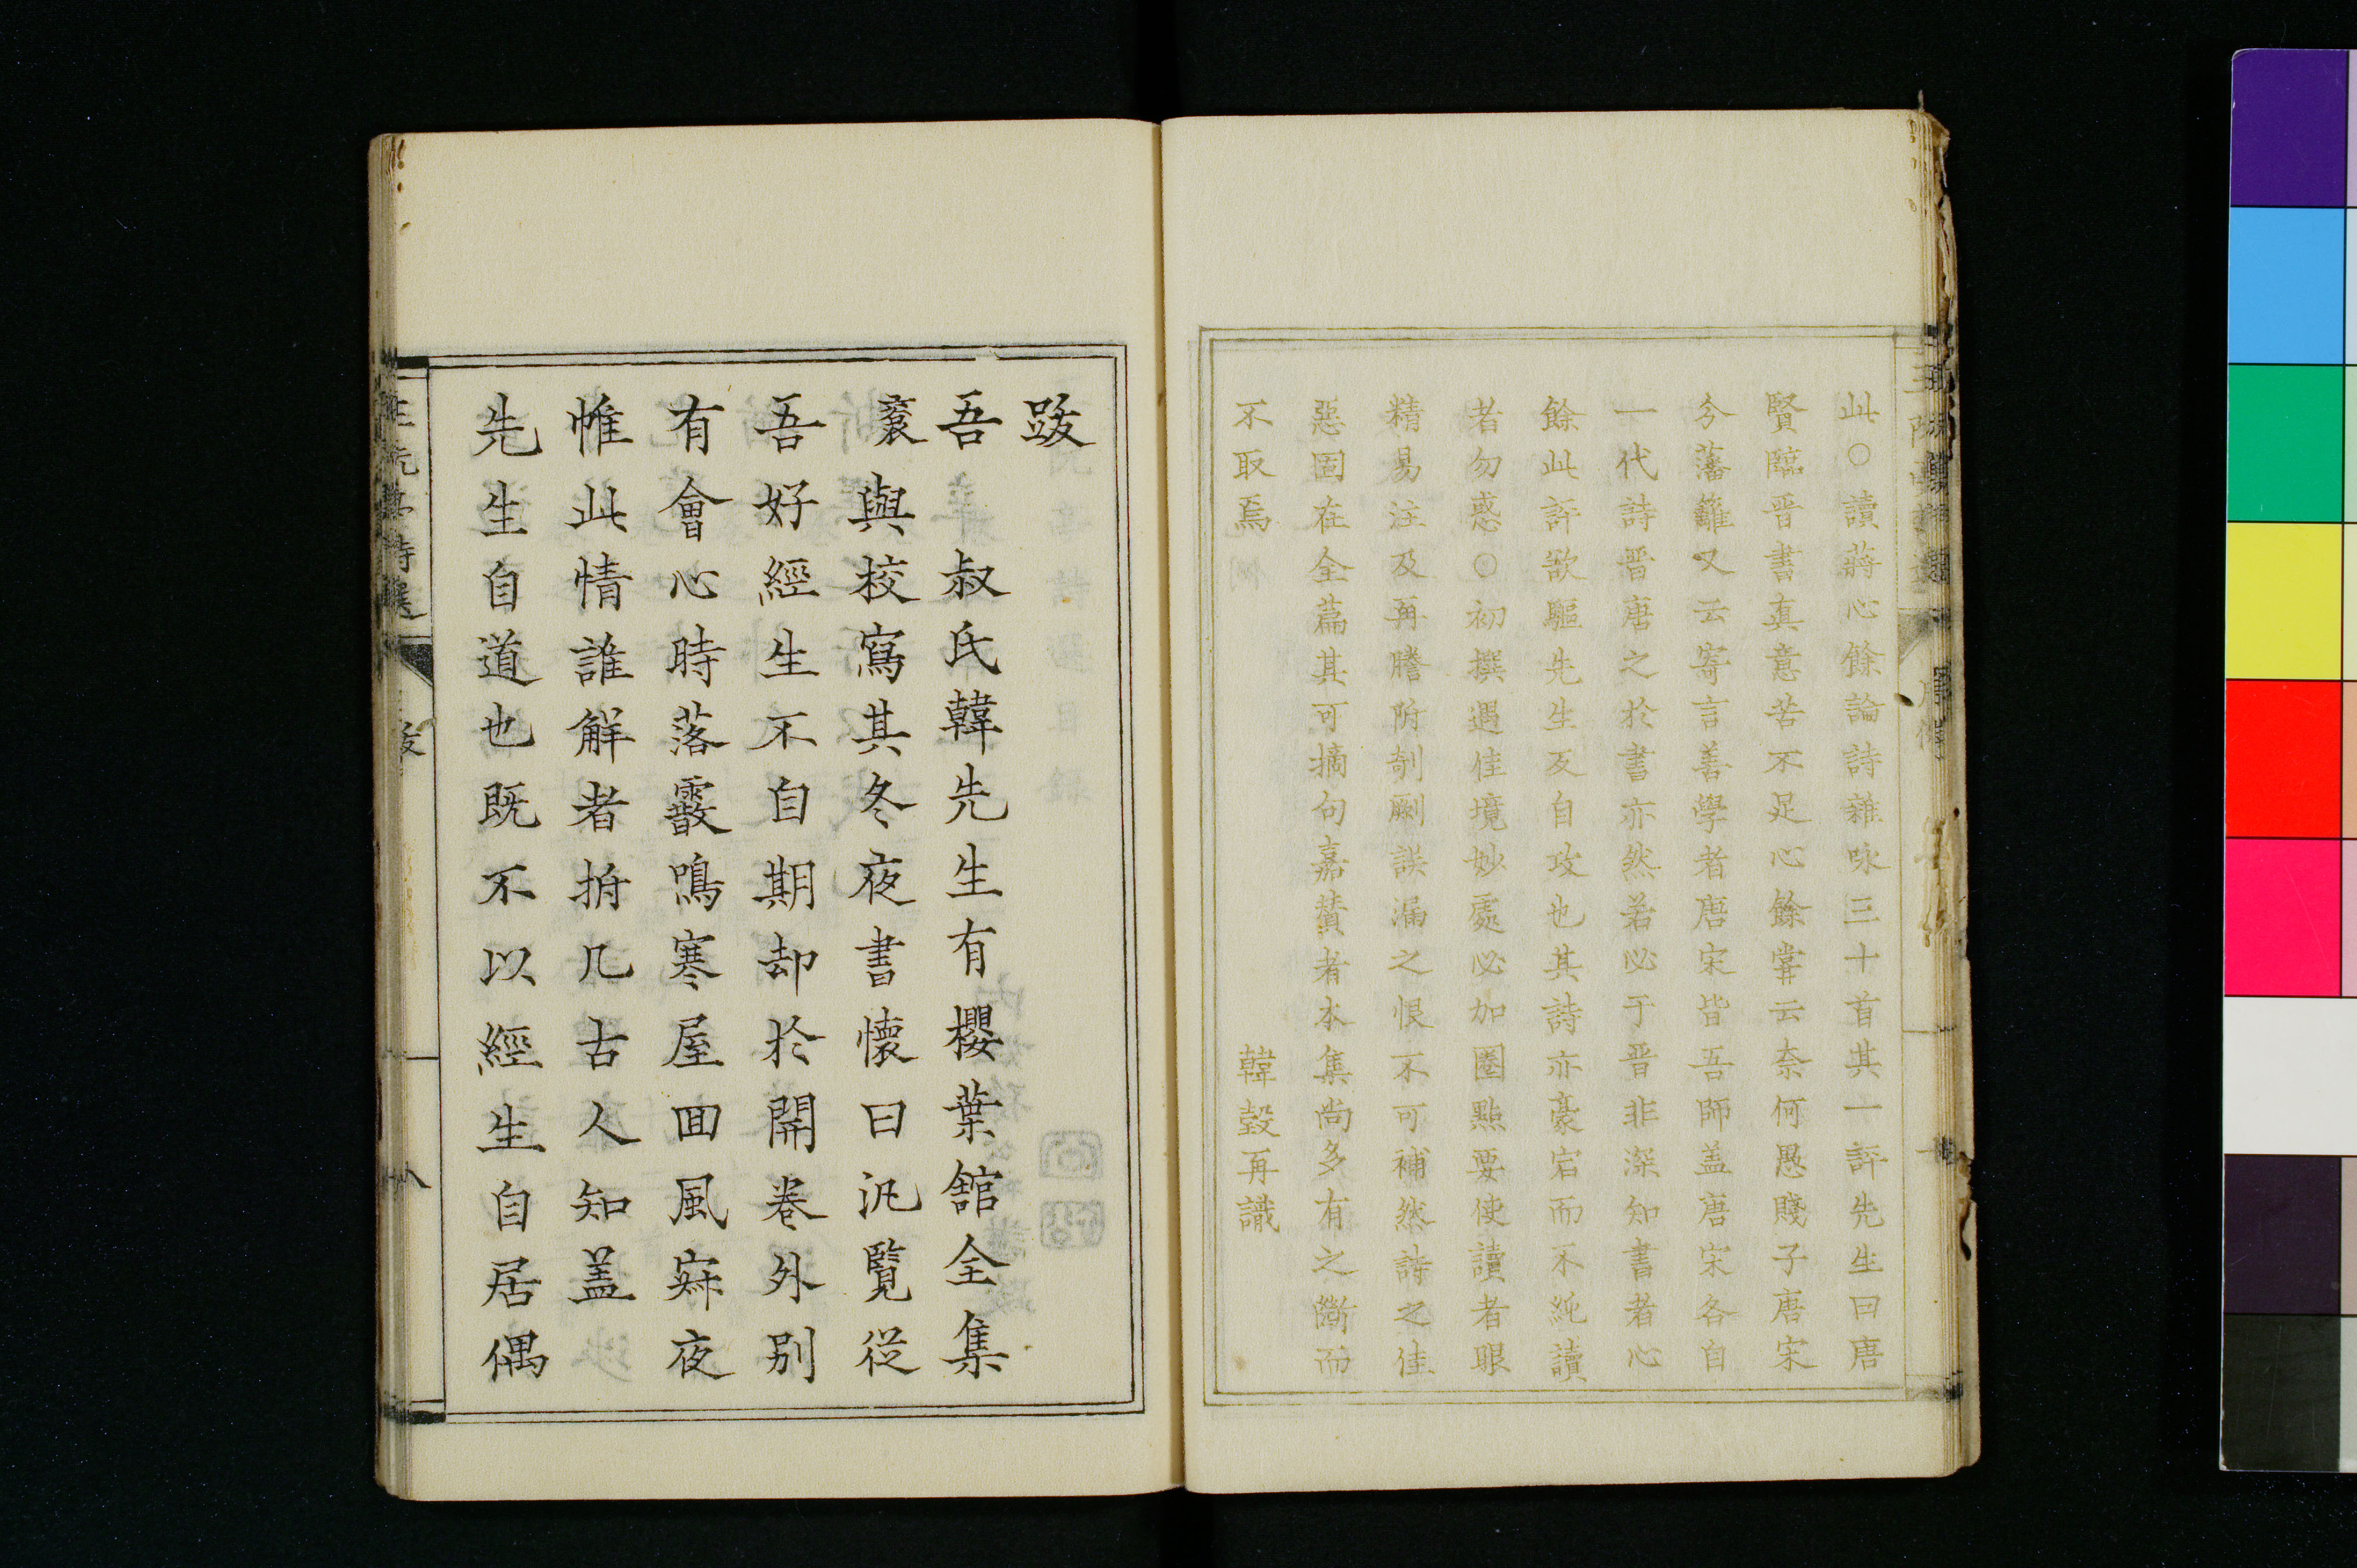 此○讀蔣心餘論詩雜咏三十首其一評先生曰唐
賢臨晋書真意苦不足心餘甞云奈何愚賤子唐宋
分藩籬又云寄言善學者唐宋皆吾師盖唐宋各自
一代詩晋唐之於書亦然若必于晋非深知書者心
餘此評欲驅先生反自攻也其詩亦豪宕而不純讀
者勿惑○初撰遇佳境妙處必加圈點要使讀者眼
精易注及再謄附剞劂誤漏之恨不可補然詩之佳
惡固在全篇其可摘句嘉賛者本集尚多有之斷而
不取焉
韓瑴再識
跋
吾 叔氏韓先生有櫻葉舘全集
裒與校寫其冬夜書懷曰汎覽從
吾好經生不自期却於開巻外別
有會心時落霰鳴寒屋囬風寐夜
帷此情誰解者拊几古人知盖
先生自道也既不以經生自居偶